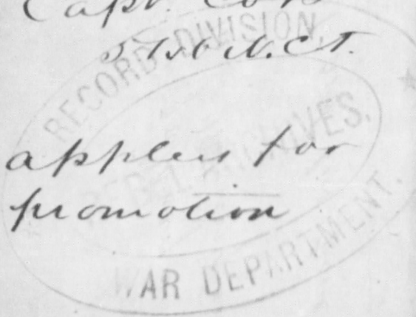 Capt. Co
N.C.T.
applies for
promotion
RECORD DIVISION,
REBEL ARCHIVES,
WAR DEPARTMENT.